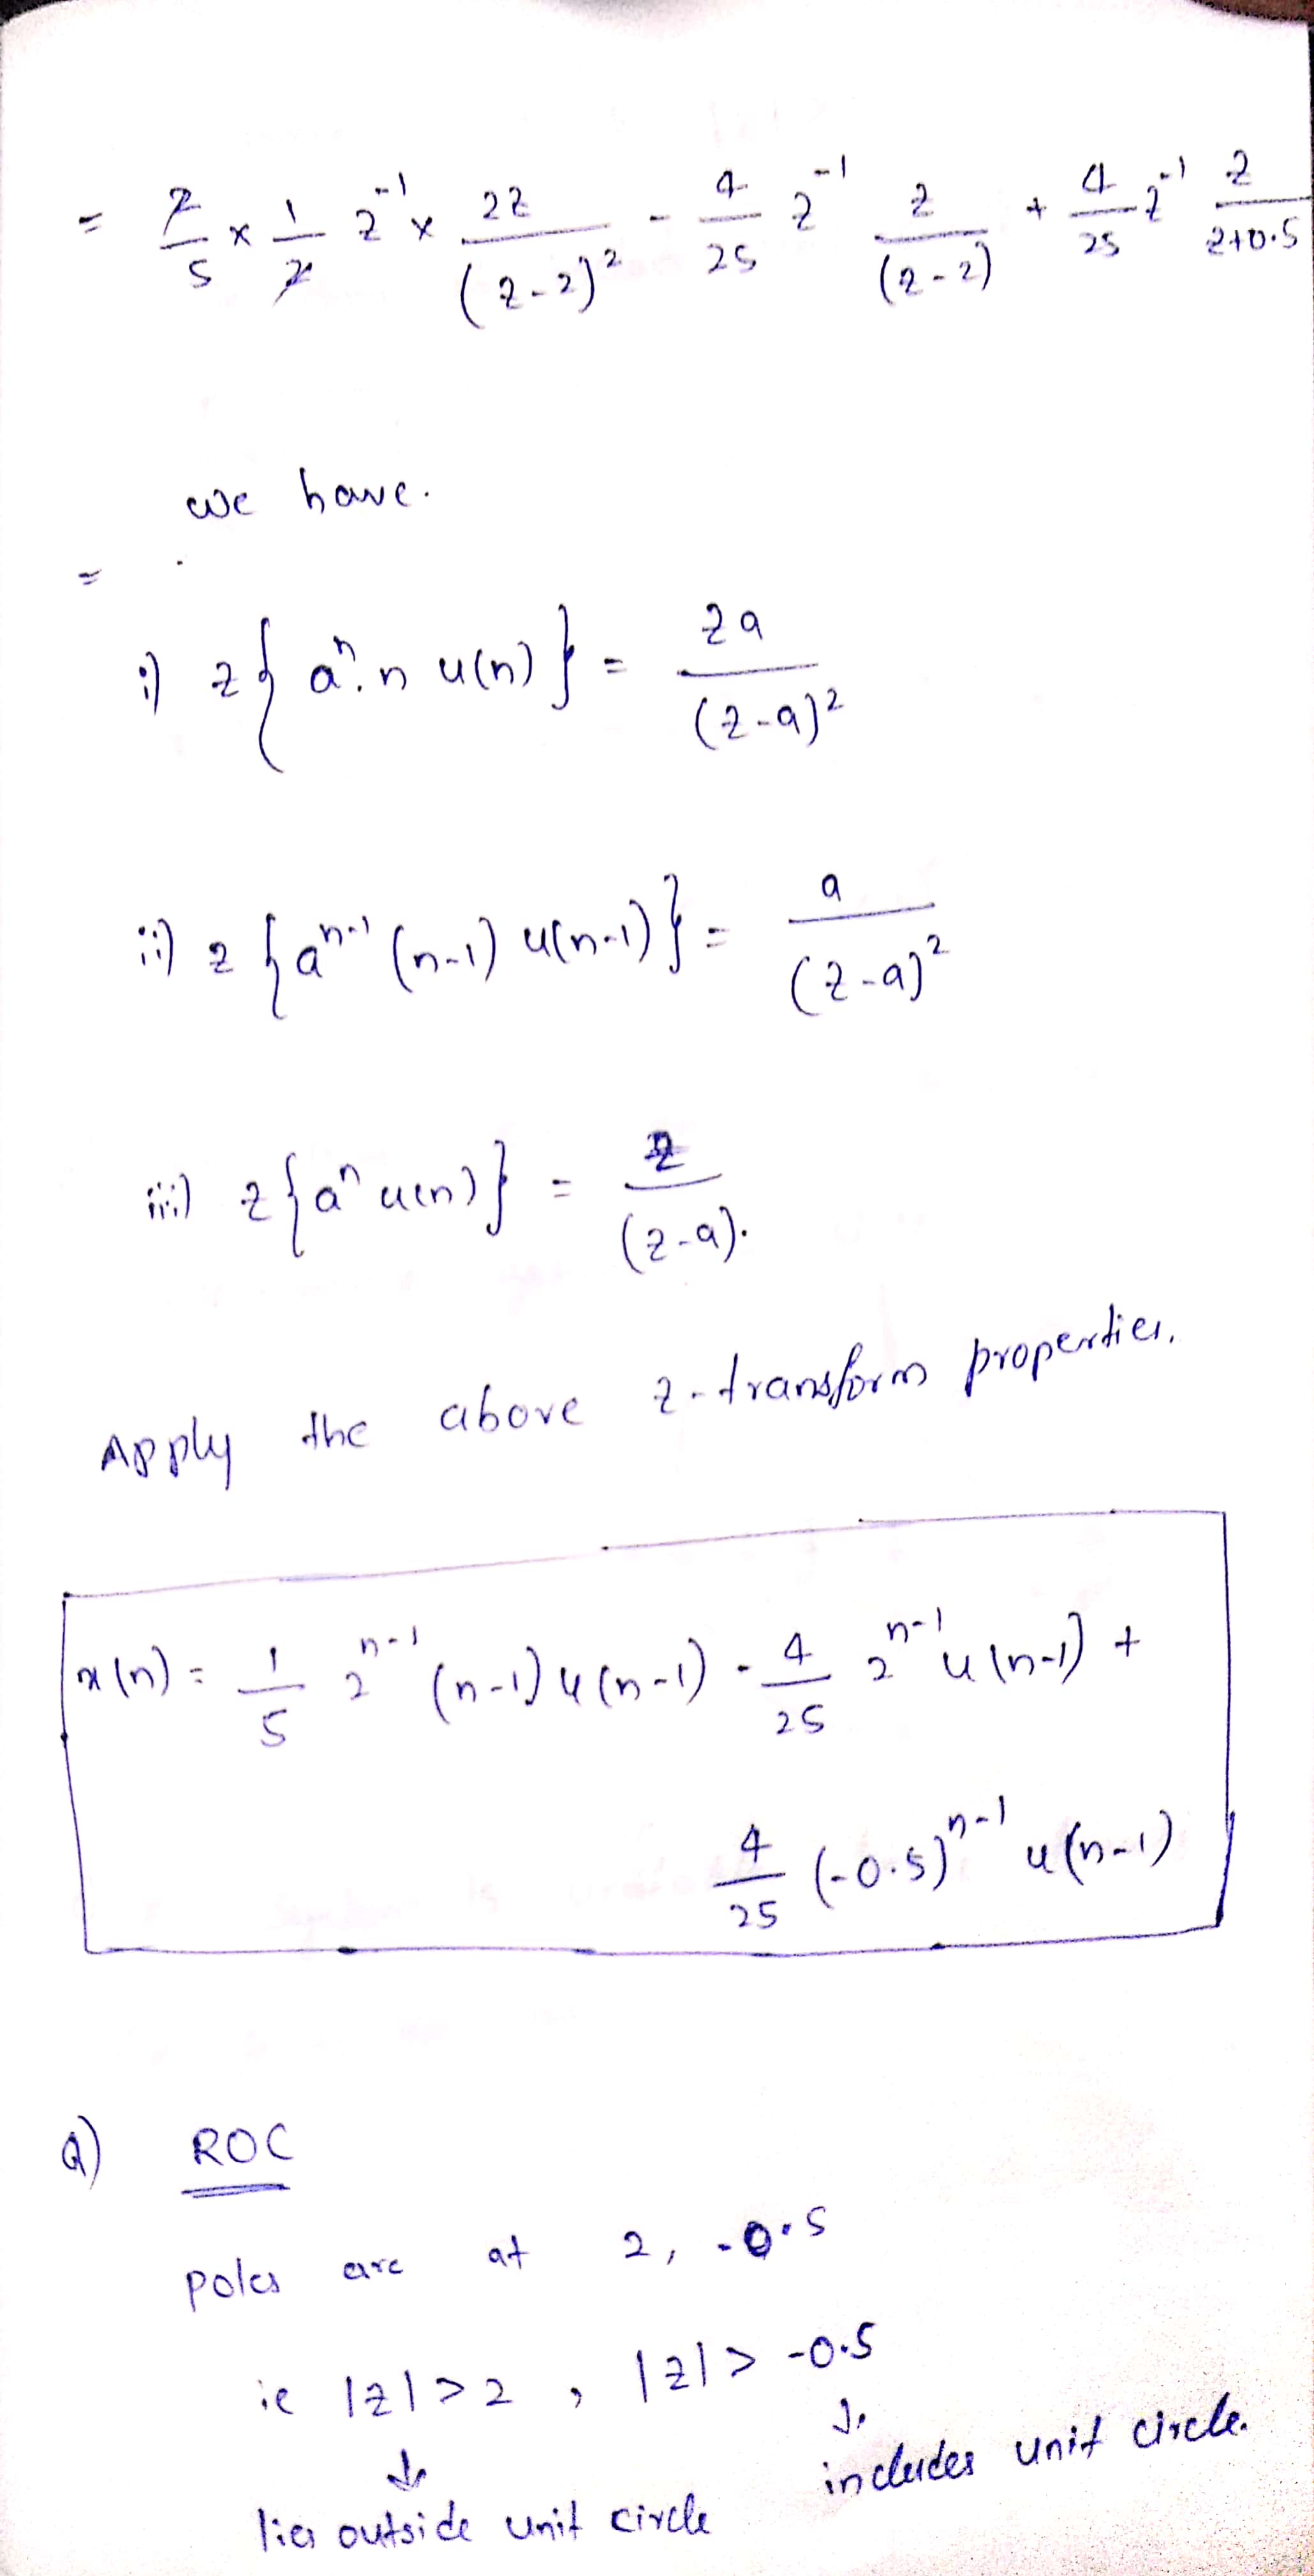 = 2/5 × 1/2 z^-1 × 2z/(z-2)^2 - 4/25 z^-1 z/(z-2) + 4/25 z^-1 z/z+0.5
we have.
=
i) z{a^n. n u(n)} = za/(z-a)^2
ii) z{a^n-1 (n-1) u(n-1)} = a/(z-a)^2
iii) z{a^n u(n)} = z/(z-a).
Apply the above z-transform properties.
x(n) = 1/5 2^n-1 (n-1) u(n-1) - 4/25 2^n-1 u(n-1) +
4/25 (-0.5)^n-1 u(n-1)
Q) ROC
poles are at 2, -0.5
ie |z|>2 , |z|> -0.5
↓ ↓
includes unit circle.
lies outside unit circle